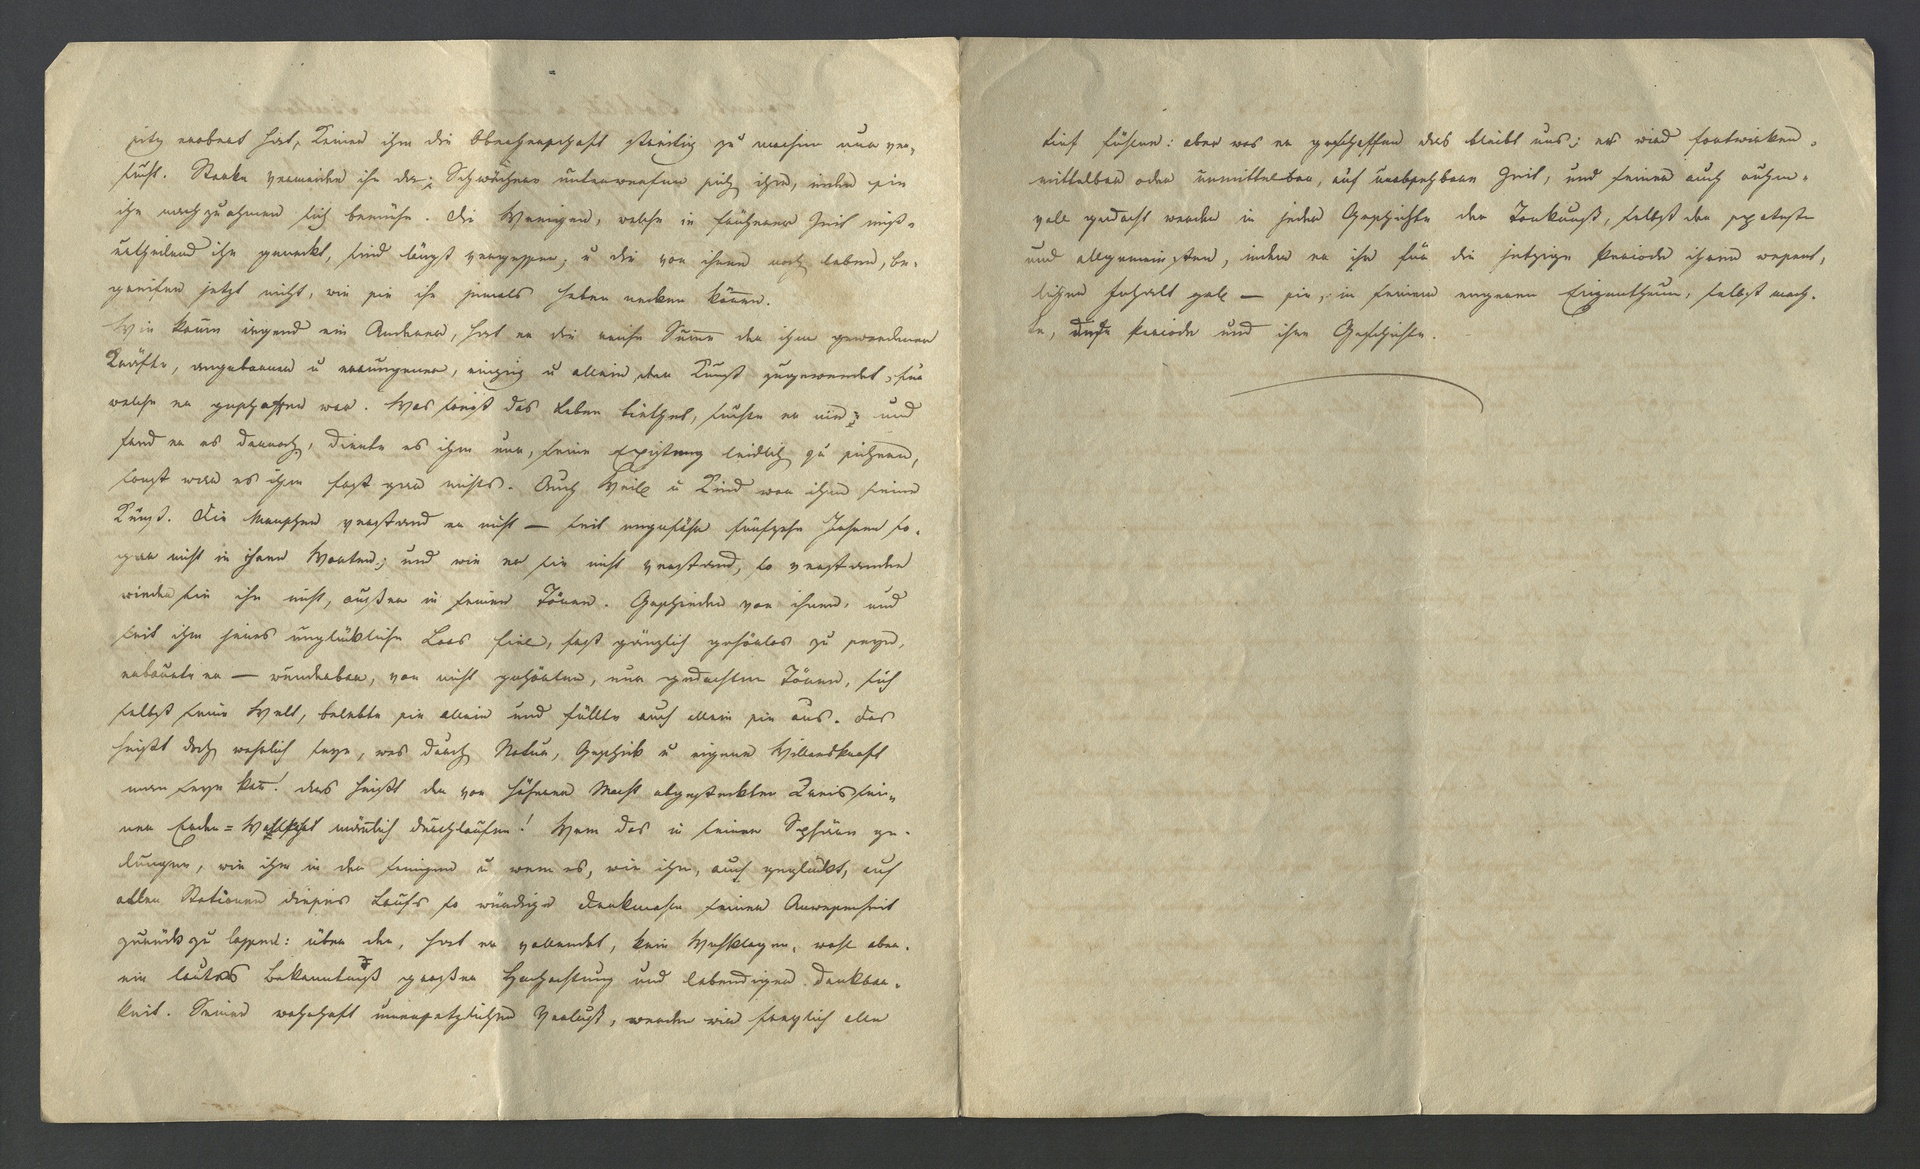 sitz erobert hat, Keiner ihm die Oberherrschaft streitig zu machen nur ver-
sucht. Starke vermeiden ihn da; Schwächere unterwerfen sich ihm, indem sie
ihn nachzuahmen sich bemühn. Die Wenigen, welche in früherer Zeit miß-
urtheilend ihn geneckt, sind längst vergessen; u die von ihnen noch leben, be-
greifen jetzt nicht, wie sie ihn jemals haben necken können.
Wie kaum irgend ein Anderer, hat er die reiche Summe der ihm gewordenen
Kräfte, angeborner u errungener, einzig u allein der Kunst zugewendet, für
welche er geschaffen war. Was sonst das Leben biethet, suchte er nie; und
fand er es dennoch, diente es ihm nur, seine Existenz leidlich zu sichern,
sonst war es ihm fast gar nichts. Auch Weib u Kind war ihm seine
Kunst. Die Menschen verstand er nicht — seit ungefähr fünfzehn Jahren so-
gar nicht in ihren Worten; und wie er sie nicht verstand, so verstanden
wieder sie ihn nicht, außer in seinen Tönen. Geschieden von ihnen, und
seit ihm jenes unglückliche Loos fiel, fast gänzlich gehörlos zu seyn,
erbauete er — wunderbar, von nicht gehörten, nur gedachten Tönen, sich
selbst seine Welt, belebte sie allein und füllte auch allein sie aus. Das
heißt doch wahrlich seyn, was durch Natur, Geschick u eigene Willenskraft
man seyn kann! das heißt den von höherer Macht abgesteckten Kreis sei-
ner Erden=Wallfahrt männlich durchlaufen! Wem das in seiner Sphäre ge-
lungen, wie ihm in der seinigen u wem es, wie ihm, auch geglückt, auf
allen Stationen dieses Laufs so würdige Denkmale seiner Anwesenheit
zurück zu lassen: über den, hat er vollendet, kein Wehklagen, wohl aber
ein lautes Bekenntniß großer Hochachtung und lebendiger Dankbar-
keit. Seinen wahrhaft unersetzlichen Verlust, werden wir freylich alle
tief fühlen: aber was er geschaffen das bleibt uns; es wird fortwirken
mittelbar oder unmittelbar, auf unabsehbare Zeit, und seiner auch ruhm-
voll gedacht werden in jeder Geschichte der Tonkunst, selbst der spätesten
und allgemeinsten, indem er ihr für die jetzige Periode ihren wesent-
lichen Inhalt gab — sie, in seinem engeren Eigenthum, selbst mach-
te, diese Periode und ihre Geschichte.